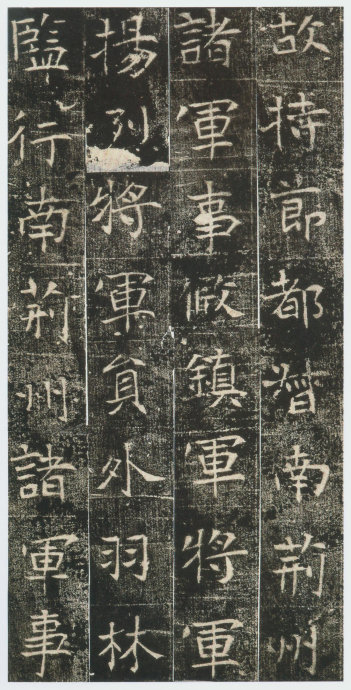 故持節都督南荊州
諸軍事假鎮軍將軍
揚列將軍負外羽林
監行南荊州諸軍事